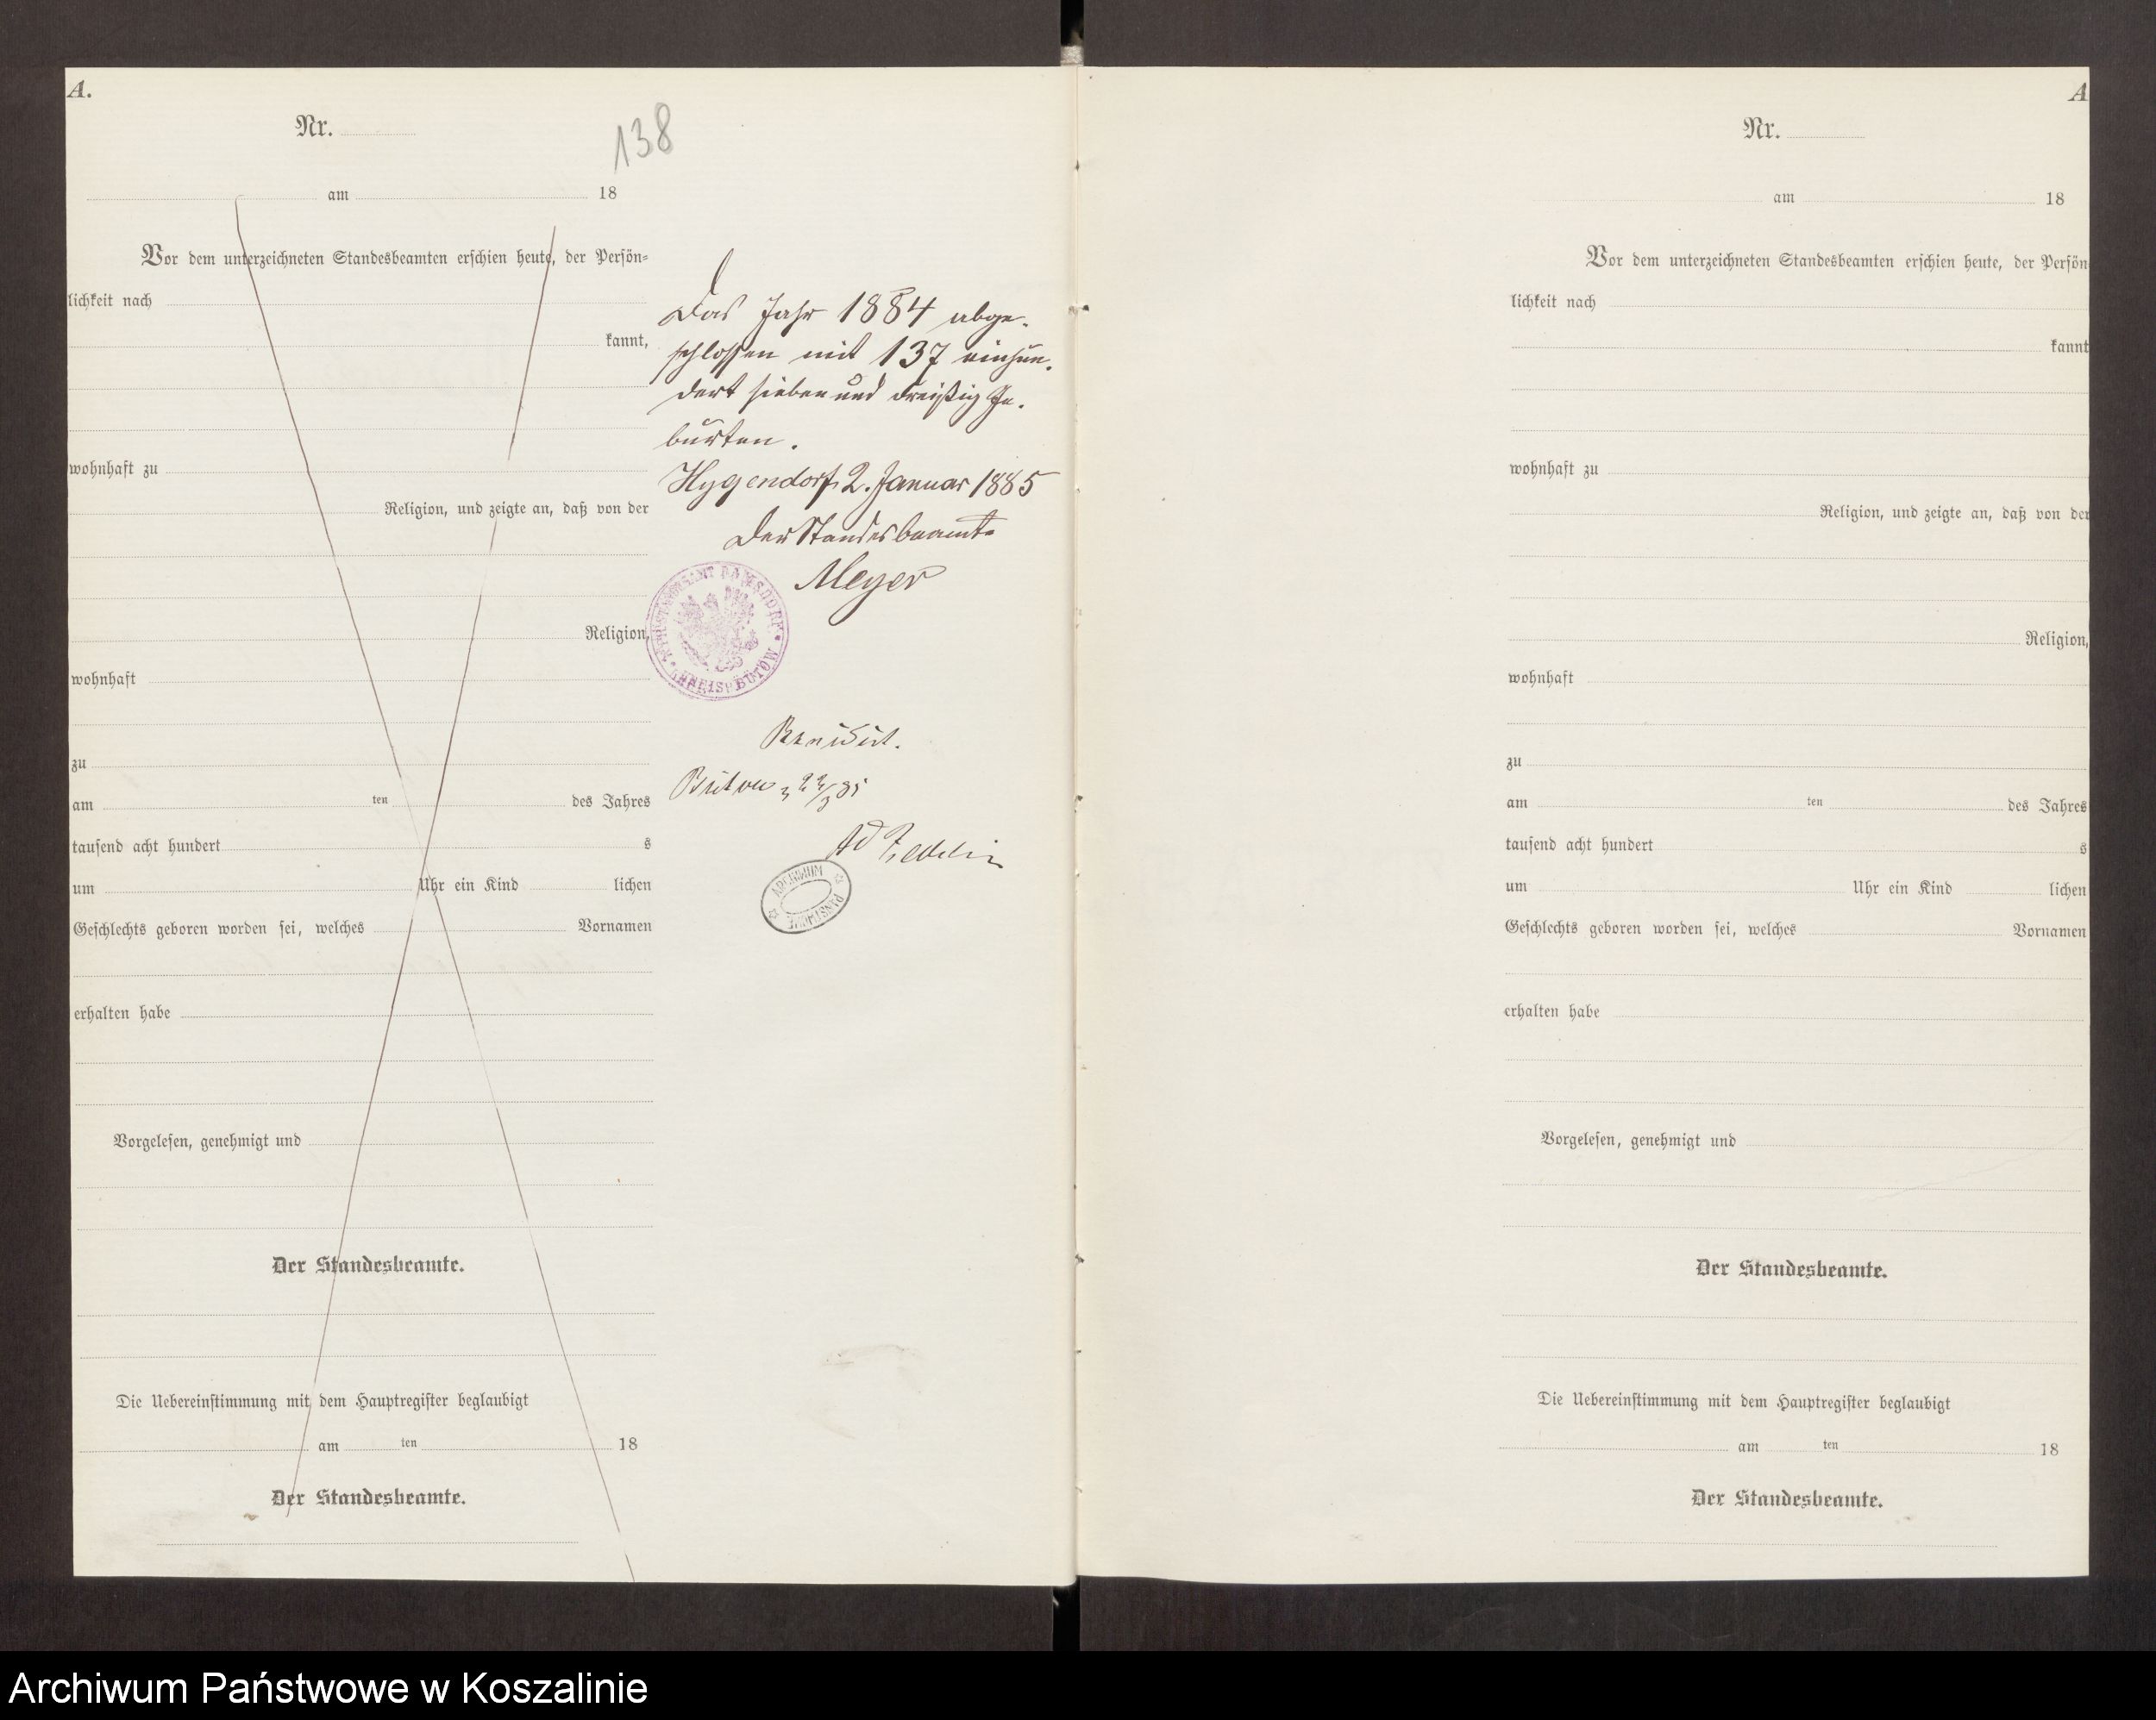 A.
Nr.
138
am 18
Vor dem unterzeichneten Standesbeamten erschien heute, der Persön=
lichkeit nach
kannt,
wohnhaft zu
Religion, und zeigte an, daß von der
Religion,
wohnhaft
zu
am ten des Jahres
tausend acht hundert s
um Uhr ein Kind lichen
Geschlechts geboren worden sei, welches Vornamen
erhalten habe
Vorgelesen, genehmigt und
Der Standesbeamte.
Die Uebereinstimmung mit dem Hauptregister beglaubigt
am ten 18
Der Standesbeamte.
Das Jahr 1884 abge-
schlossen mit 137 einhun-
dert sieben und dreißig Ge-
burten.
Hygendorf, 2. Januar 1885
Der Standesbeamte
Meyer
DAMSDORF
KREIS BÜTOW
Revidirt.
Bütow 22/3 85
ARCHIWUM
PAŃSTWOWE
A
Nr.
am 18
Vor dem unterzeichneten Standesbeamten erschien heute, der Persön
lichkeit nach
kannt
wohnhaft zu
Religion, und zeigte an, daß von der
Religion,
wohnhaft
zu
am ten des Jahres
tausend acht hundert s
um Uhr ein Kind lichen
Geschlechts geboren worden sei, welches Vornamen
erhalten habe
Vorgelesen, genehmigt und
Der Standesbeamte.
Die Uebereinstimmung mit dem Hauptregister beglaubigt
am ten 18
Der Standesbeamte.
Archiwum Państwowe w Koszalinie